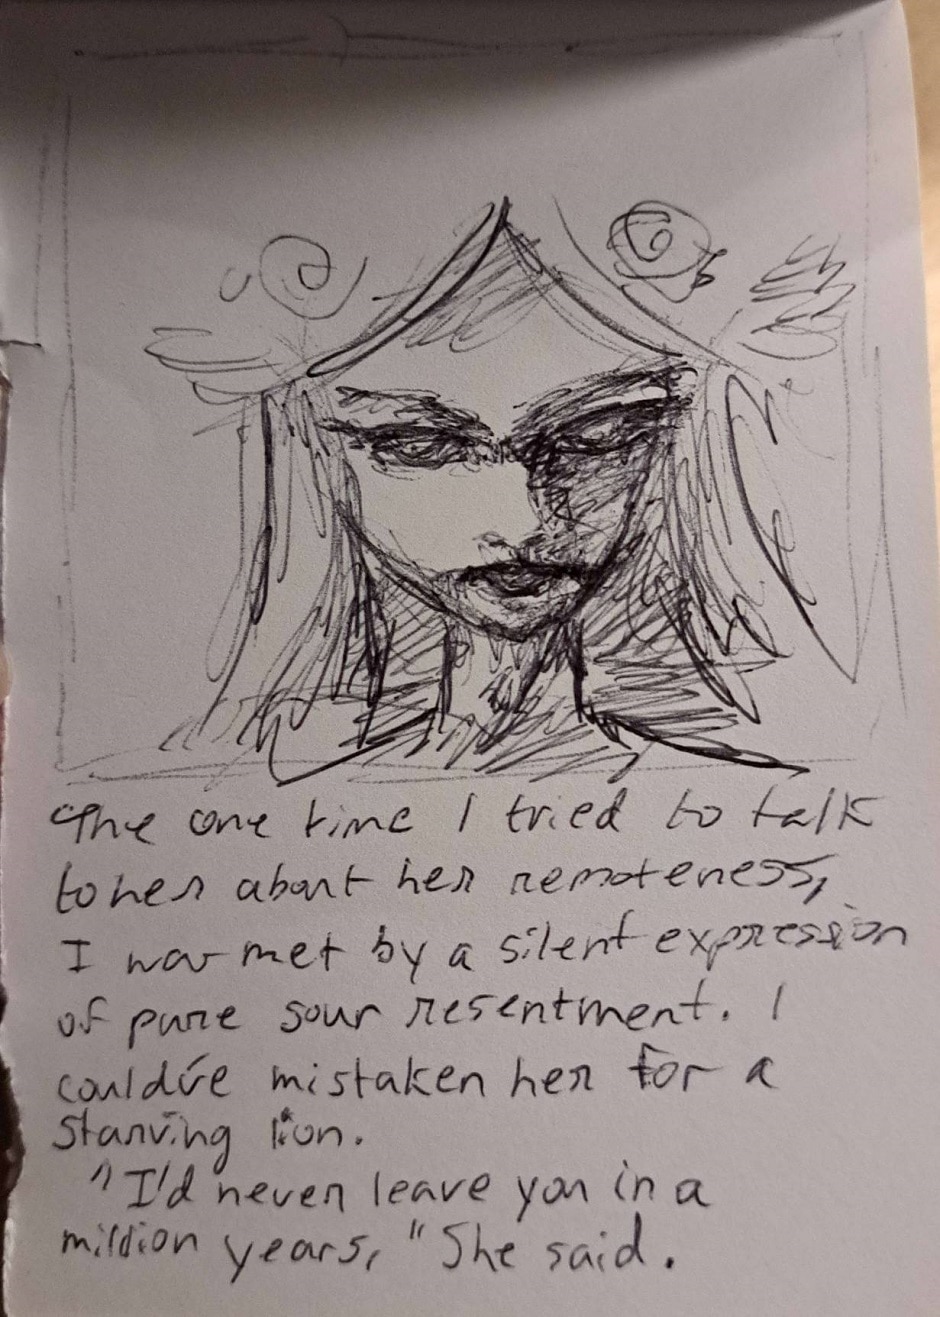 "The one time I tried to talk
to her about her remoteness,
I was met by a silent expression
of pure sour resentment. I
could've mistaken her for a
starving lion.
"I'd never leave you in a
million years," She said.